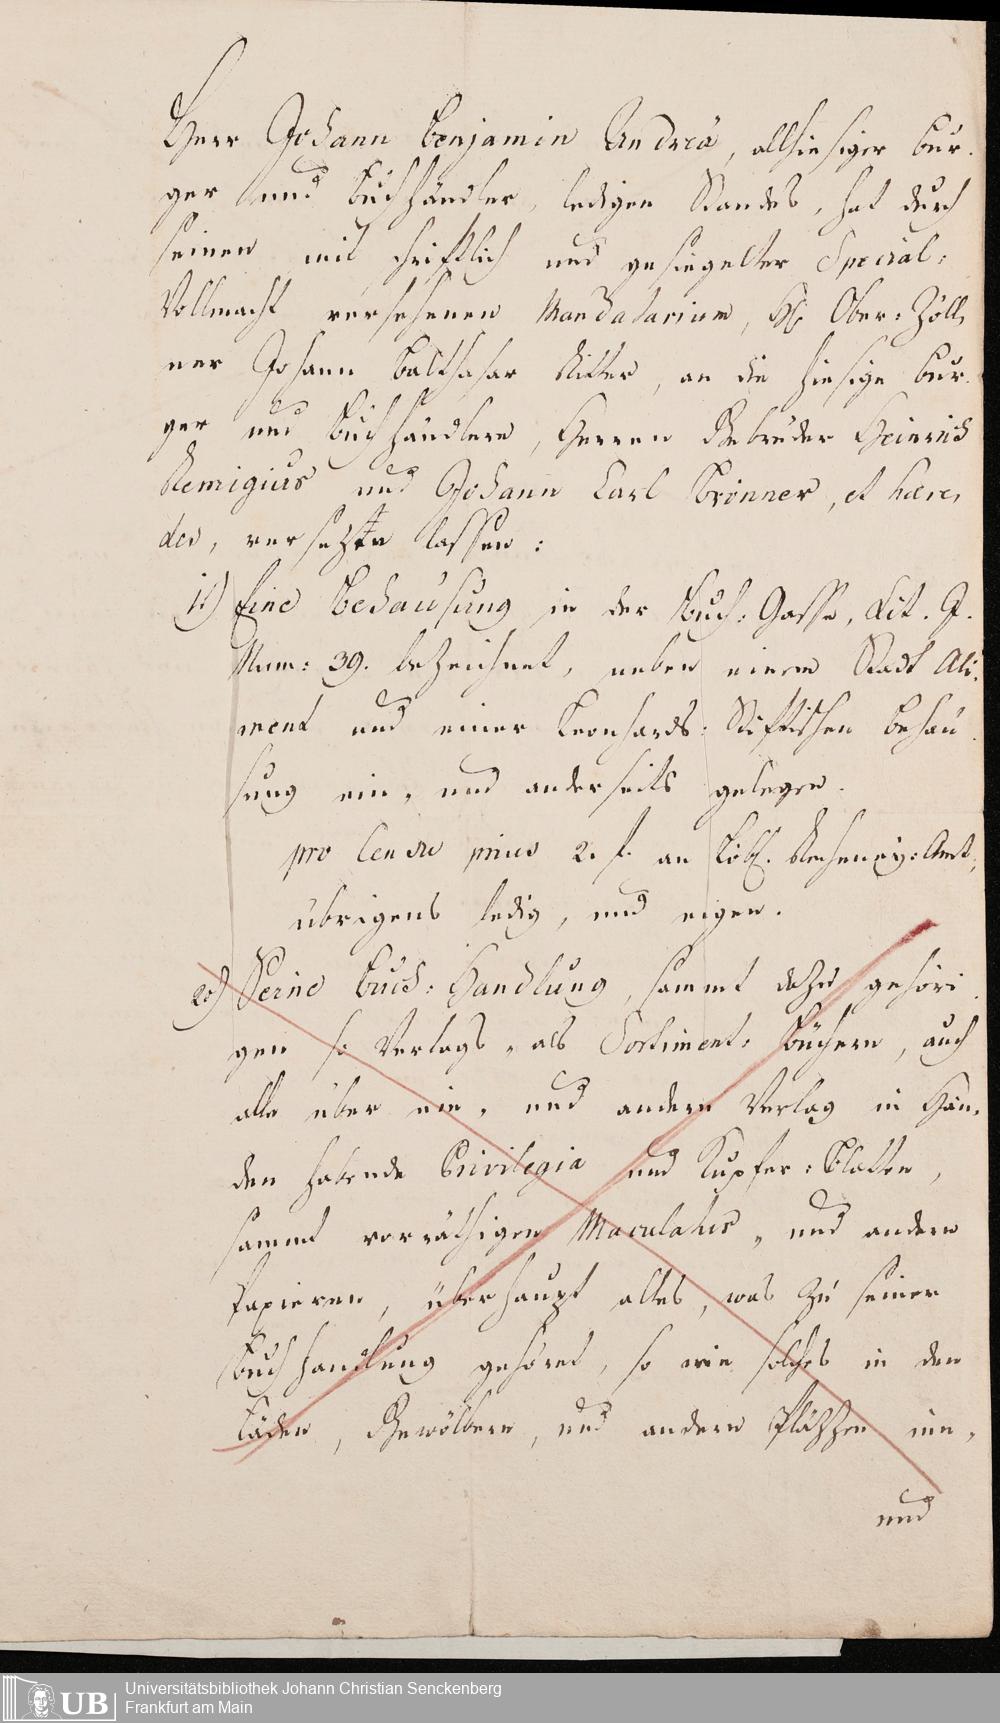 Herr Johann Benjamin Andreä, allhiesiger bur-
ger und buchhändler, ledigen Standes, hat durch
seinen mit schriftlich und gesiegelter Special-
Vollmacht versehenen Mandatarium, H. Ober-Zöll-
ner Johann Balthasar Ritter, an die hiesige bur-
ger und buchhändlere, Herren Gebrüder Heinrich
Remigius und Johann Carl Brönner, et haere-
des, versetzen lassen:
1.) Eine Behausung in der Buch-Gasse, Lit. J.
Num: 39. bezeichnet, neben einem Stadt Ali-
ment und einer Leonhards-Stifftischen behau-
sung ein- und anderseits gelegen.
pro Censu prius 2. f. an Löbl. Recheney-Amt,
übrigens ledig, und eigen.
2.) Seine Buch-Handlung, sammt dazu gehöri-
gen so Verlags- als Sortiment-büchern, auch
alle über ein- und andern Verlag in Hän-
den habende Privilegia und Kupfer-Platten,
sammt vorräthigen Maculatur- und andern
papieren, überhaupt alles, was zu seiner
buchhandlung gehöret, so wie solches in den
Läden, Gewölbern, und andern Plätzen ein-
und
UB
Universitätsbibliothek Johann Christian Senckenberg
Frankfurt am Main